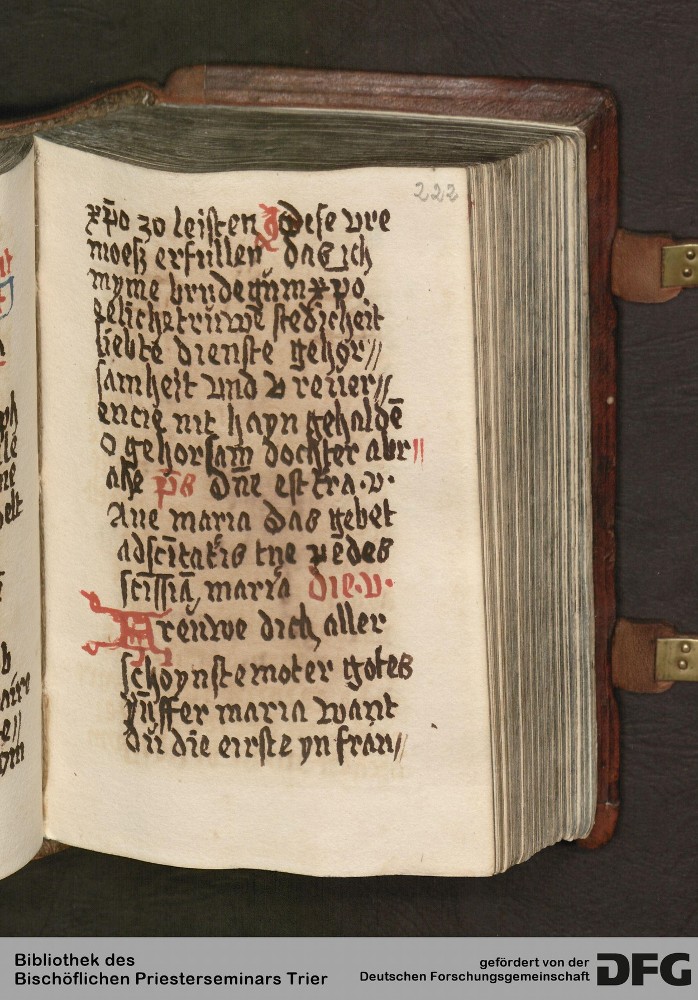 222
xp̄o zo leisten dese vre
moesz erfullen das ich
myme brudegūm xp̄o
geliche truwe stedicheit
liebte dienste gehor//
samheit vnd vreuer//
encie nit hayn gehaldē
o gehorsam dochter abr//
ahe p̄s dn̄e est tr̄a · v ·
Aue maria das gebet
adsc̄itatis tue pēdes
sc̄issiā maria die · v ·
Freuwe dich aller
schoynste moter gotes
yūffer maria want
du die eirste yn fran//
Bibliothek des
Bischöflichen Priesterseminars Trier
gefördert von der
Deutschen Forschungsgemeinschaft
DFG